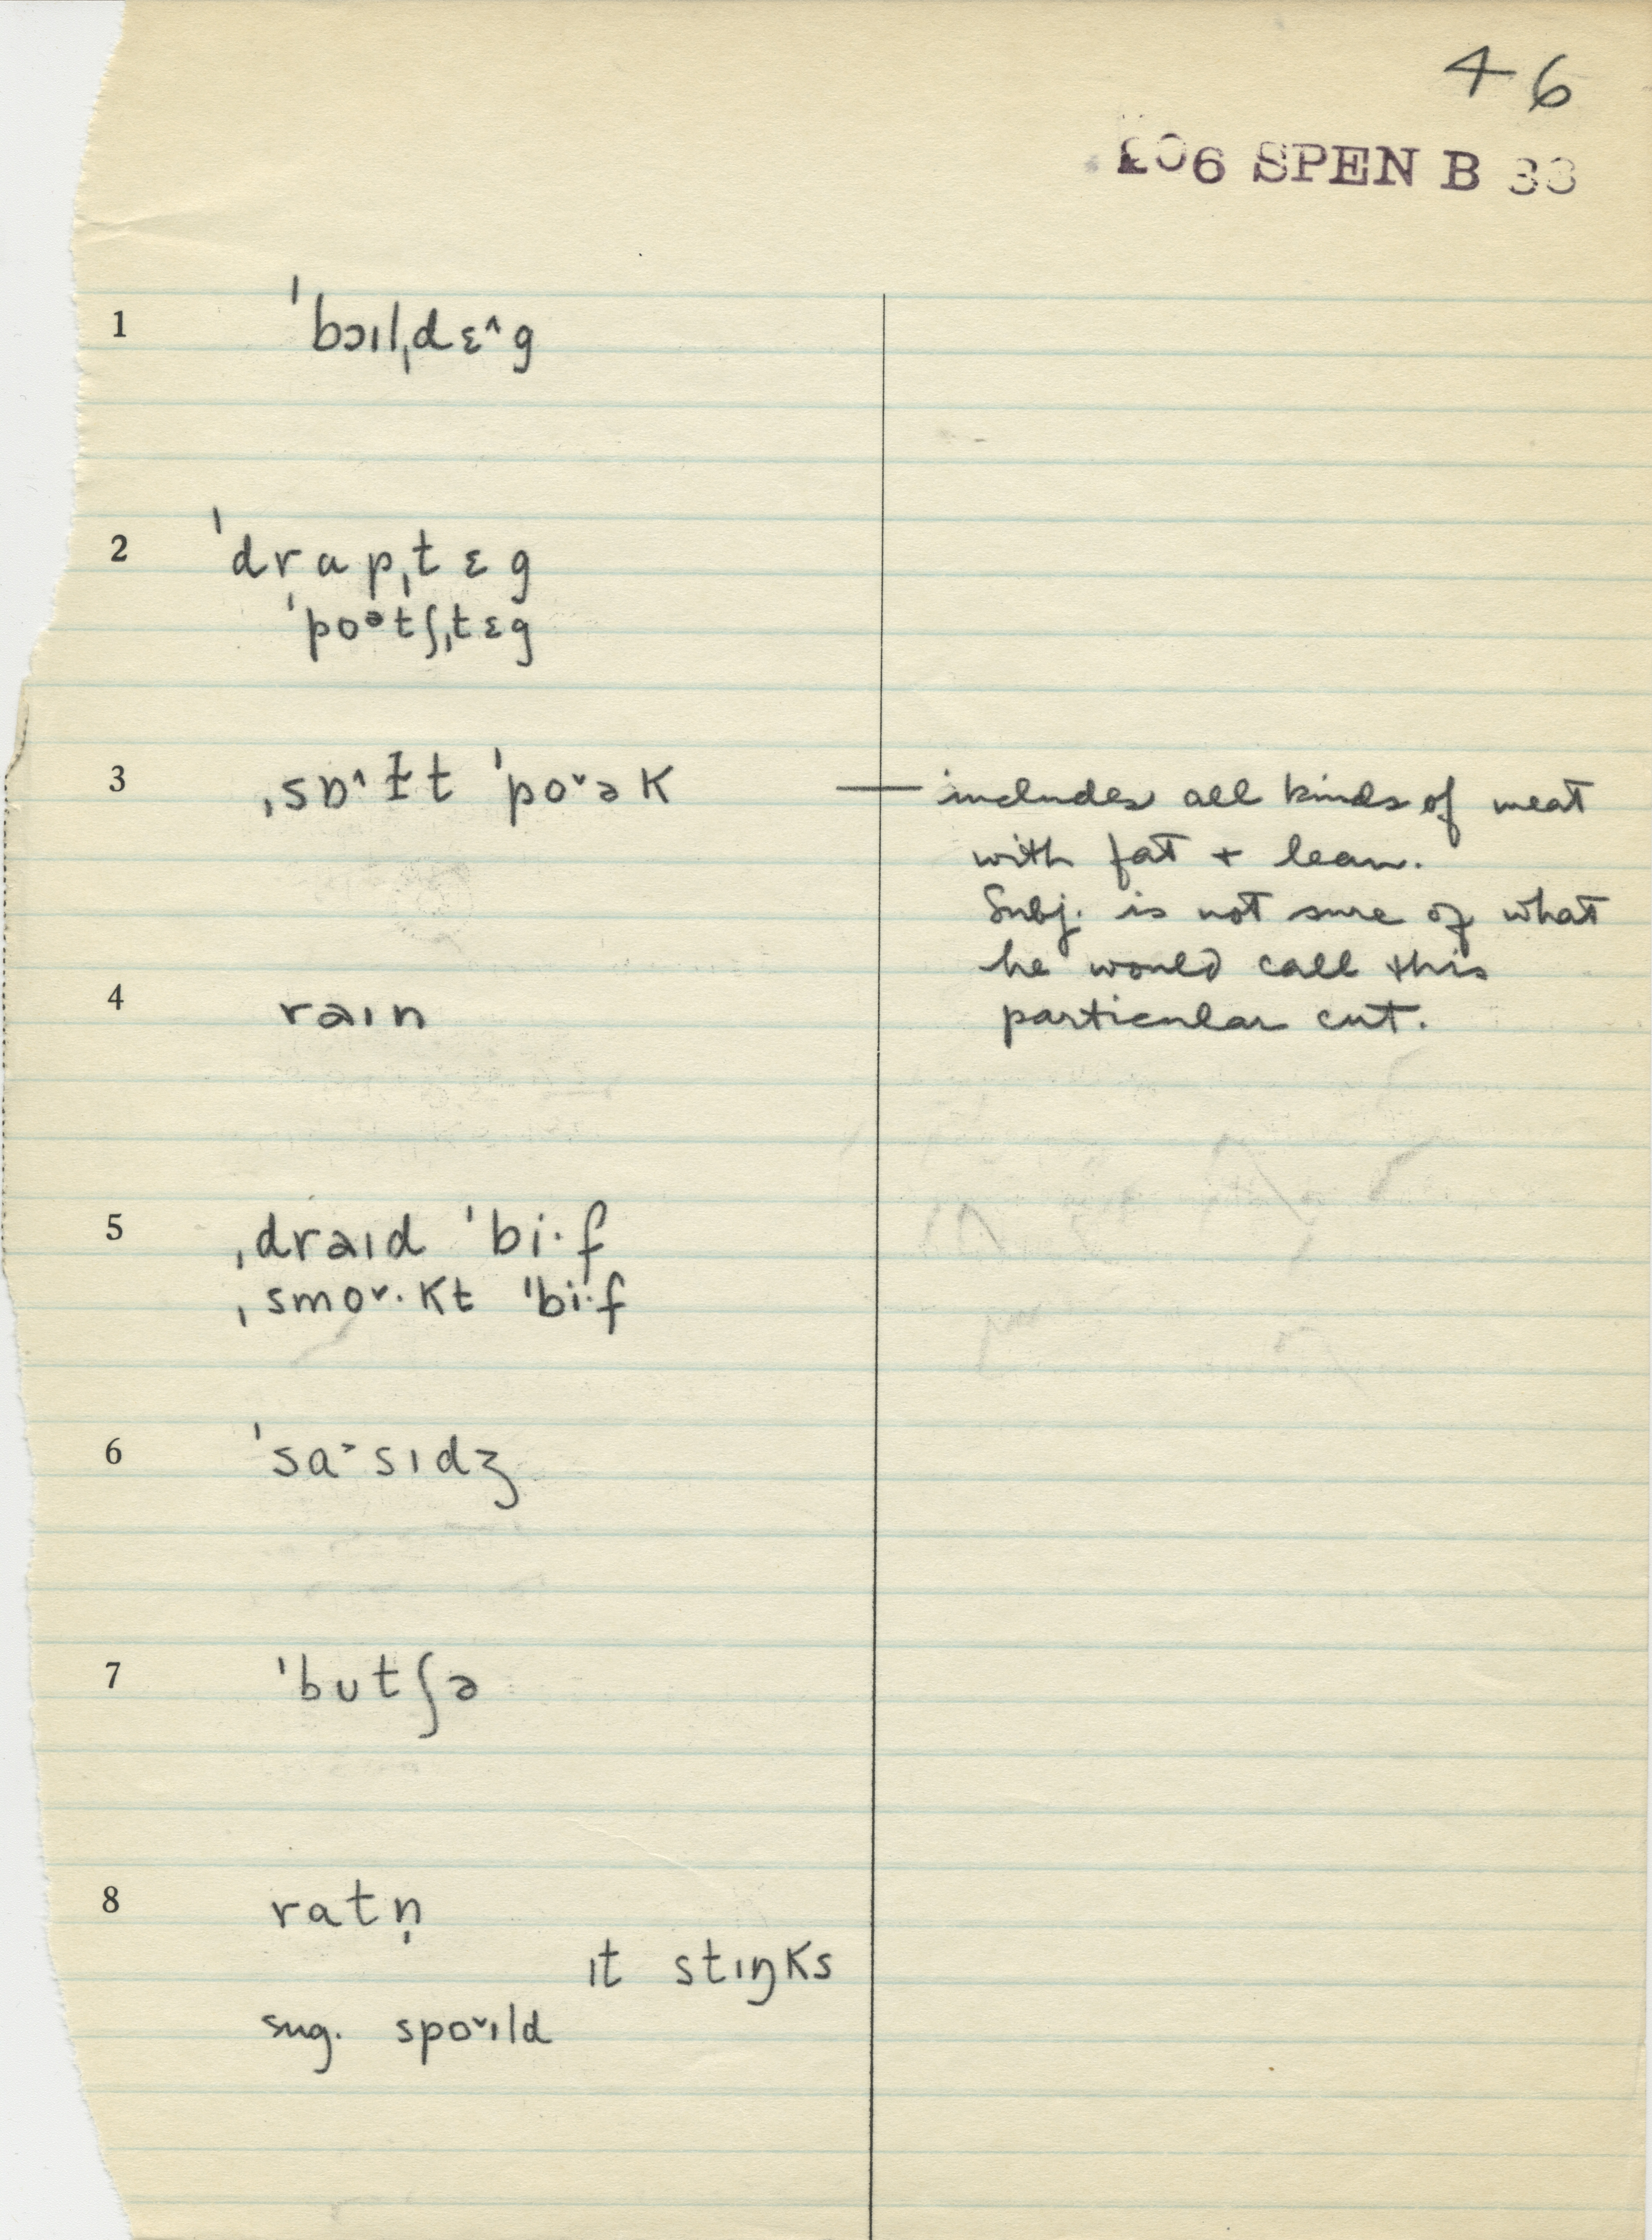 46
206 SPEN B 33
1 ˈbɔɪlˌdɛ^g
2 ˈdrɑpˌtɛg
ˈpoᵊtʃˌtɛg
3 ˌsɒ^ɫt ˈpo˅ək — includes all kinds of meat
with fat + lean.
Subj. is not sure of what
he would call this
4 raɪn particular cut.
5 ˌdraɪd ˈbi·f
ˌsmo˅·kt ˈbi·f
6 ˈsɑ˃sɪdʒ
7 ˈbutʃə
8 rɑtn̩
ɪt stɪŋks
sug. spo˅ɪld